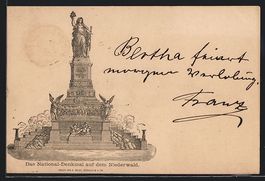 Bertha feiert
morgen Verlobung.
Franz
Das National-Denkmal auf dem Niederwald.